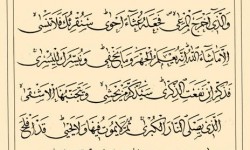 وَالَّذِي أَخْرَجَ الْمَرْعَى فَجَعَلَهُ غُثَاءً أَحْوَى سَنُقْرِئُكَ فَلَا تَنْسَى
إِلَّا مَا شَاءَ اللَّهُ إِنَّهُ يَعْلَمُ الْجَهْرَ وَمَا يَخْفَى وَنُيَسِّرُكَ لِلْيُسْرَى
فَذَكِّرْ إِنْ نَفَعَتِ الذِّكْرَى سَيَذَّكَّرُ مَنْ يَخْشَى وَيَتَجَنَّبُهَا الْأَشْقَى
الَّذِي يَصْلَى النَّارَ الْكُبْرَى ثُمَّ لَا يَمُوتُ فِيهَا وَلَا يَحْيَى قَدْ أَفْلَحَ